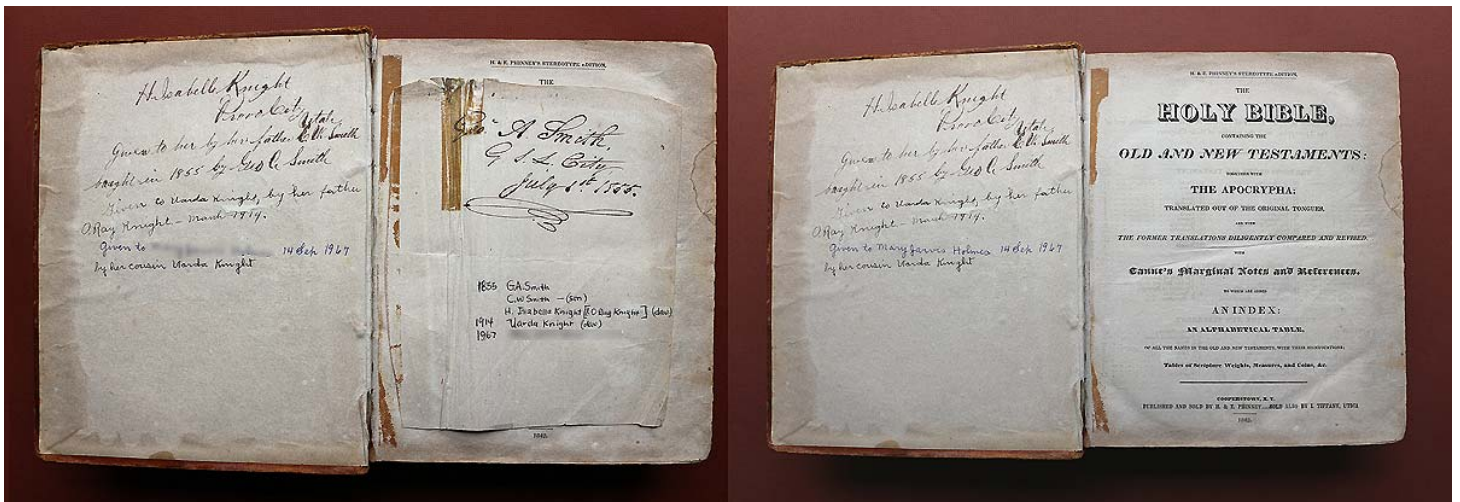 H. Isabelle Knight
Provo City
Utah
Given to her by her father C.W. Smith
bought in 1855 by Geo A. Smith
Given to Uarda Knight, by her father
O. Ray Knight – March 1914.
Given to 14 Sep 1967
by her cousin Uarda Knight
H. & E. PHINNEY'S STEREOTYPE EDITION.
THE
Geo. A Smith.
G. S. L. City
July 1st 1855.
1855 G.A. Smith
C.W Smith – (son)
H. Isabelle Knight [& O Ray Knight] (dau)
1914 Uarda Knight (dau)
1967
1842.
H. Isabelle Knight
Provo City
Utah
Given to her by her father C.W. Smith
bought in 1855 by Geo A. Smith
Given to Uarda Knight, by her father
O. Ray Knight – March 1914.
Given to Mary Jarvis Holmes 14 Sep 1967
by her cousin Uarda Knight
H. & E. PHINNEY'S STEREOTYPE EDITION.
THE
HOLY BIBLE,
CONTAINING THE
OLD AND NEW TESTAMENTS:
TOGETHER WITH
THE APOCRYPHA:
TRANSLATED OUT OF THE ORIGINAL TONGUES,
AND WITH
THE FORMER TRANSLATIONS DILIGENTLY COMPARED AND REVISED.
WITH
Canne's Marginal Notes and References.
TO WHICH ARE ADDED
AN INDEX:
AN ALPHABETICAL TABLE,
OF ALL THE NAMES IN THE OLD AND NEW TESTAMENTS, WITH THEIR SIGNIFICATIONS;
Tables of Scripture Weights, Measures, and Coins, &c.
COOPERSTOWN, N. Y.
PUBLISHED AND SOLD BY H. & E. PHINNEY....SOLD ALSO BY I. TIFFANY, UTICA
1842.